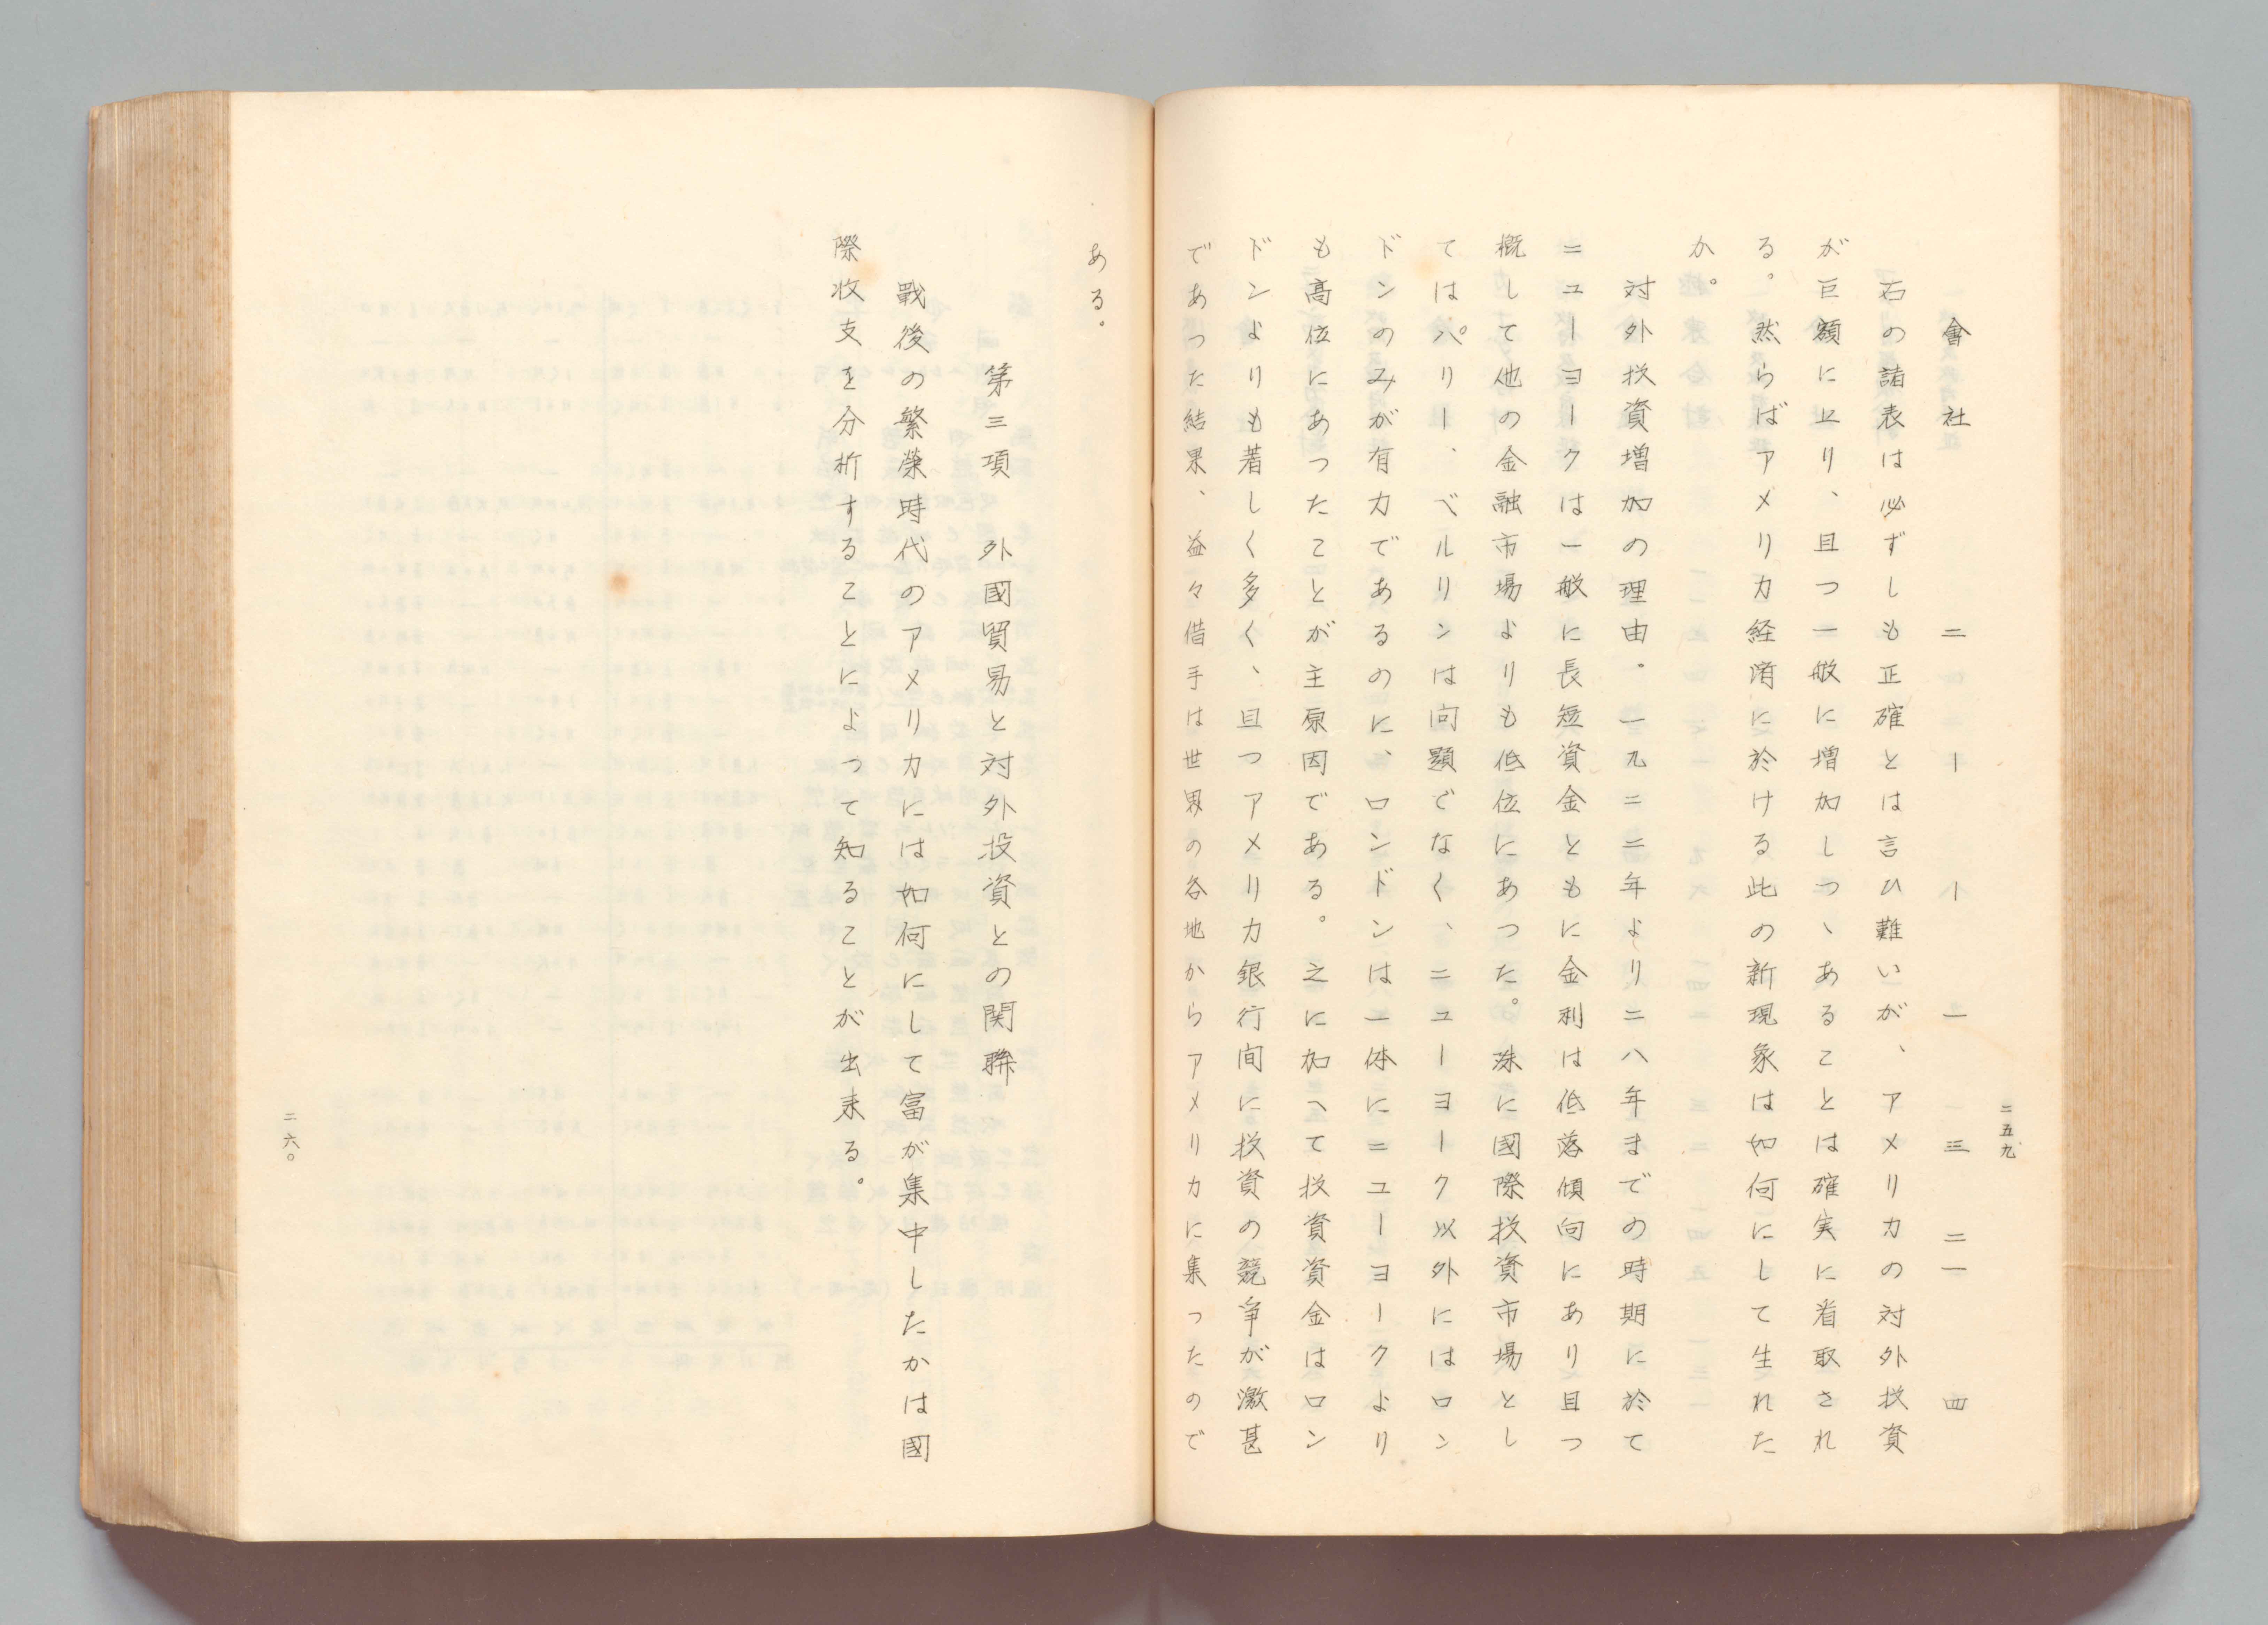 二五九
會社　二　ー　ー　一　三　二一　四
右の諸表は必ずしも正確とは言ひ難いが、アメリカの対外投資
が巨額に上り、且つ一般に増加しつゝあることは確実に看取され
る。然らばアメリカ経済に於ける此の新現象は如何にして生れた
か。
対外投資増加の理由。一九二二年より二八年までの時期に於て
ニューヨークは一般に長短資金ともに金利は低落傾向にあり且つ
概して他の金融市場よりも低位にあつた。殊に國際投資市場とし
てはパリー、ベルリンは问題でなく、ニューヨーク以外にはロン
ドンのみが有力であるのに、ロンドンは一体にニューヨークより
も高位にあつたことが主原因である。之に加へて投資資金はロン
ドンよりも著しく多く、且つアメリカ銀行间に投資の競争が激甚
であつた結果、益々借手は世界の各地からアメリカに集つたので
ある。
第三項　外國貿易と対外投資との関聯
戰後の繁榮時代のアメリカには如何にして富が集中したかは國
際收支を分析することによつて知ることが出来る。
二六〇